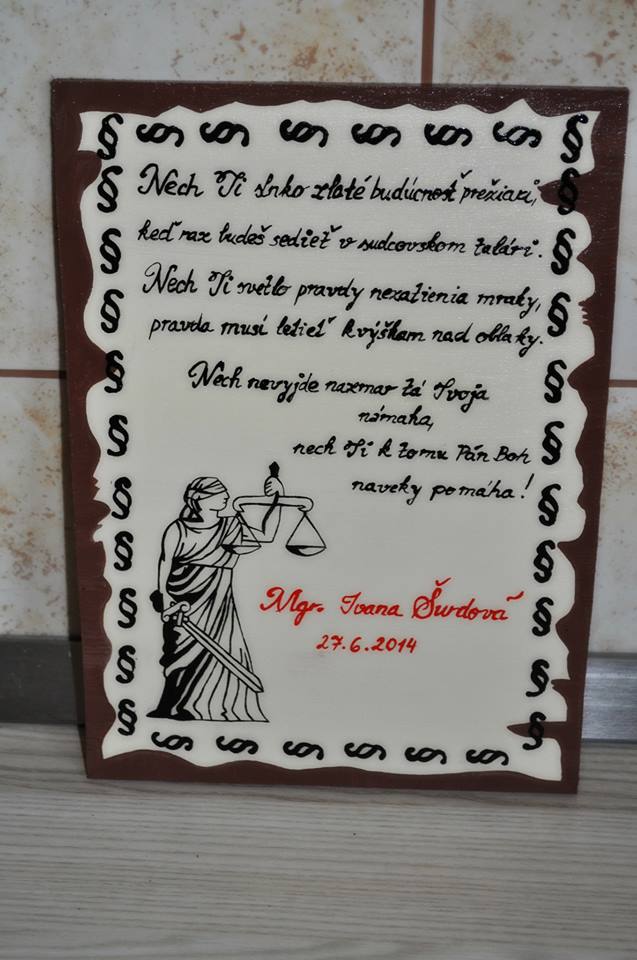 § § § § § § § §
Nech Ti slnko zlaté budúcnosť prežiari,
keď raz budeš sedieť v sudcovskom talári.
Nech Ti svetlo pravdy nezatienia mraky,
pravda musí letieť k výškam nad oblaky.
Nech nevyjde nazmar tá Tvoja
námaha,
nech Ti k tomu Pán Boh
naveky pomáha!
Mgr. Ivana Šurdová
27.6.2014